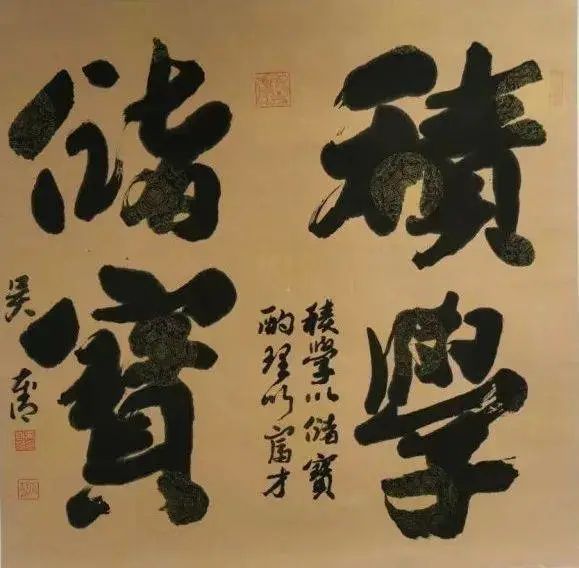 積學
儲寶
積學以儲寶
酌理以富才
吳